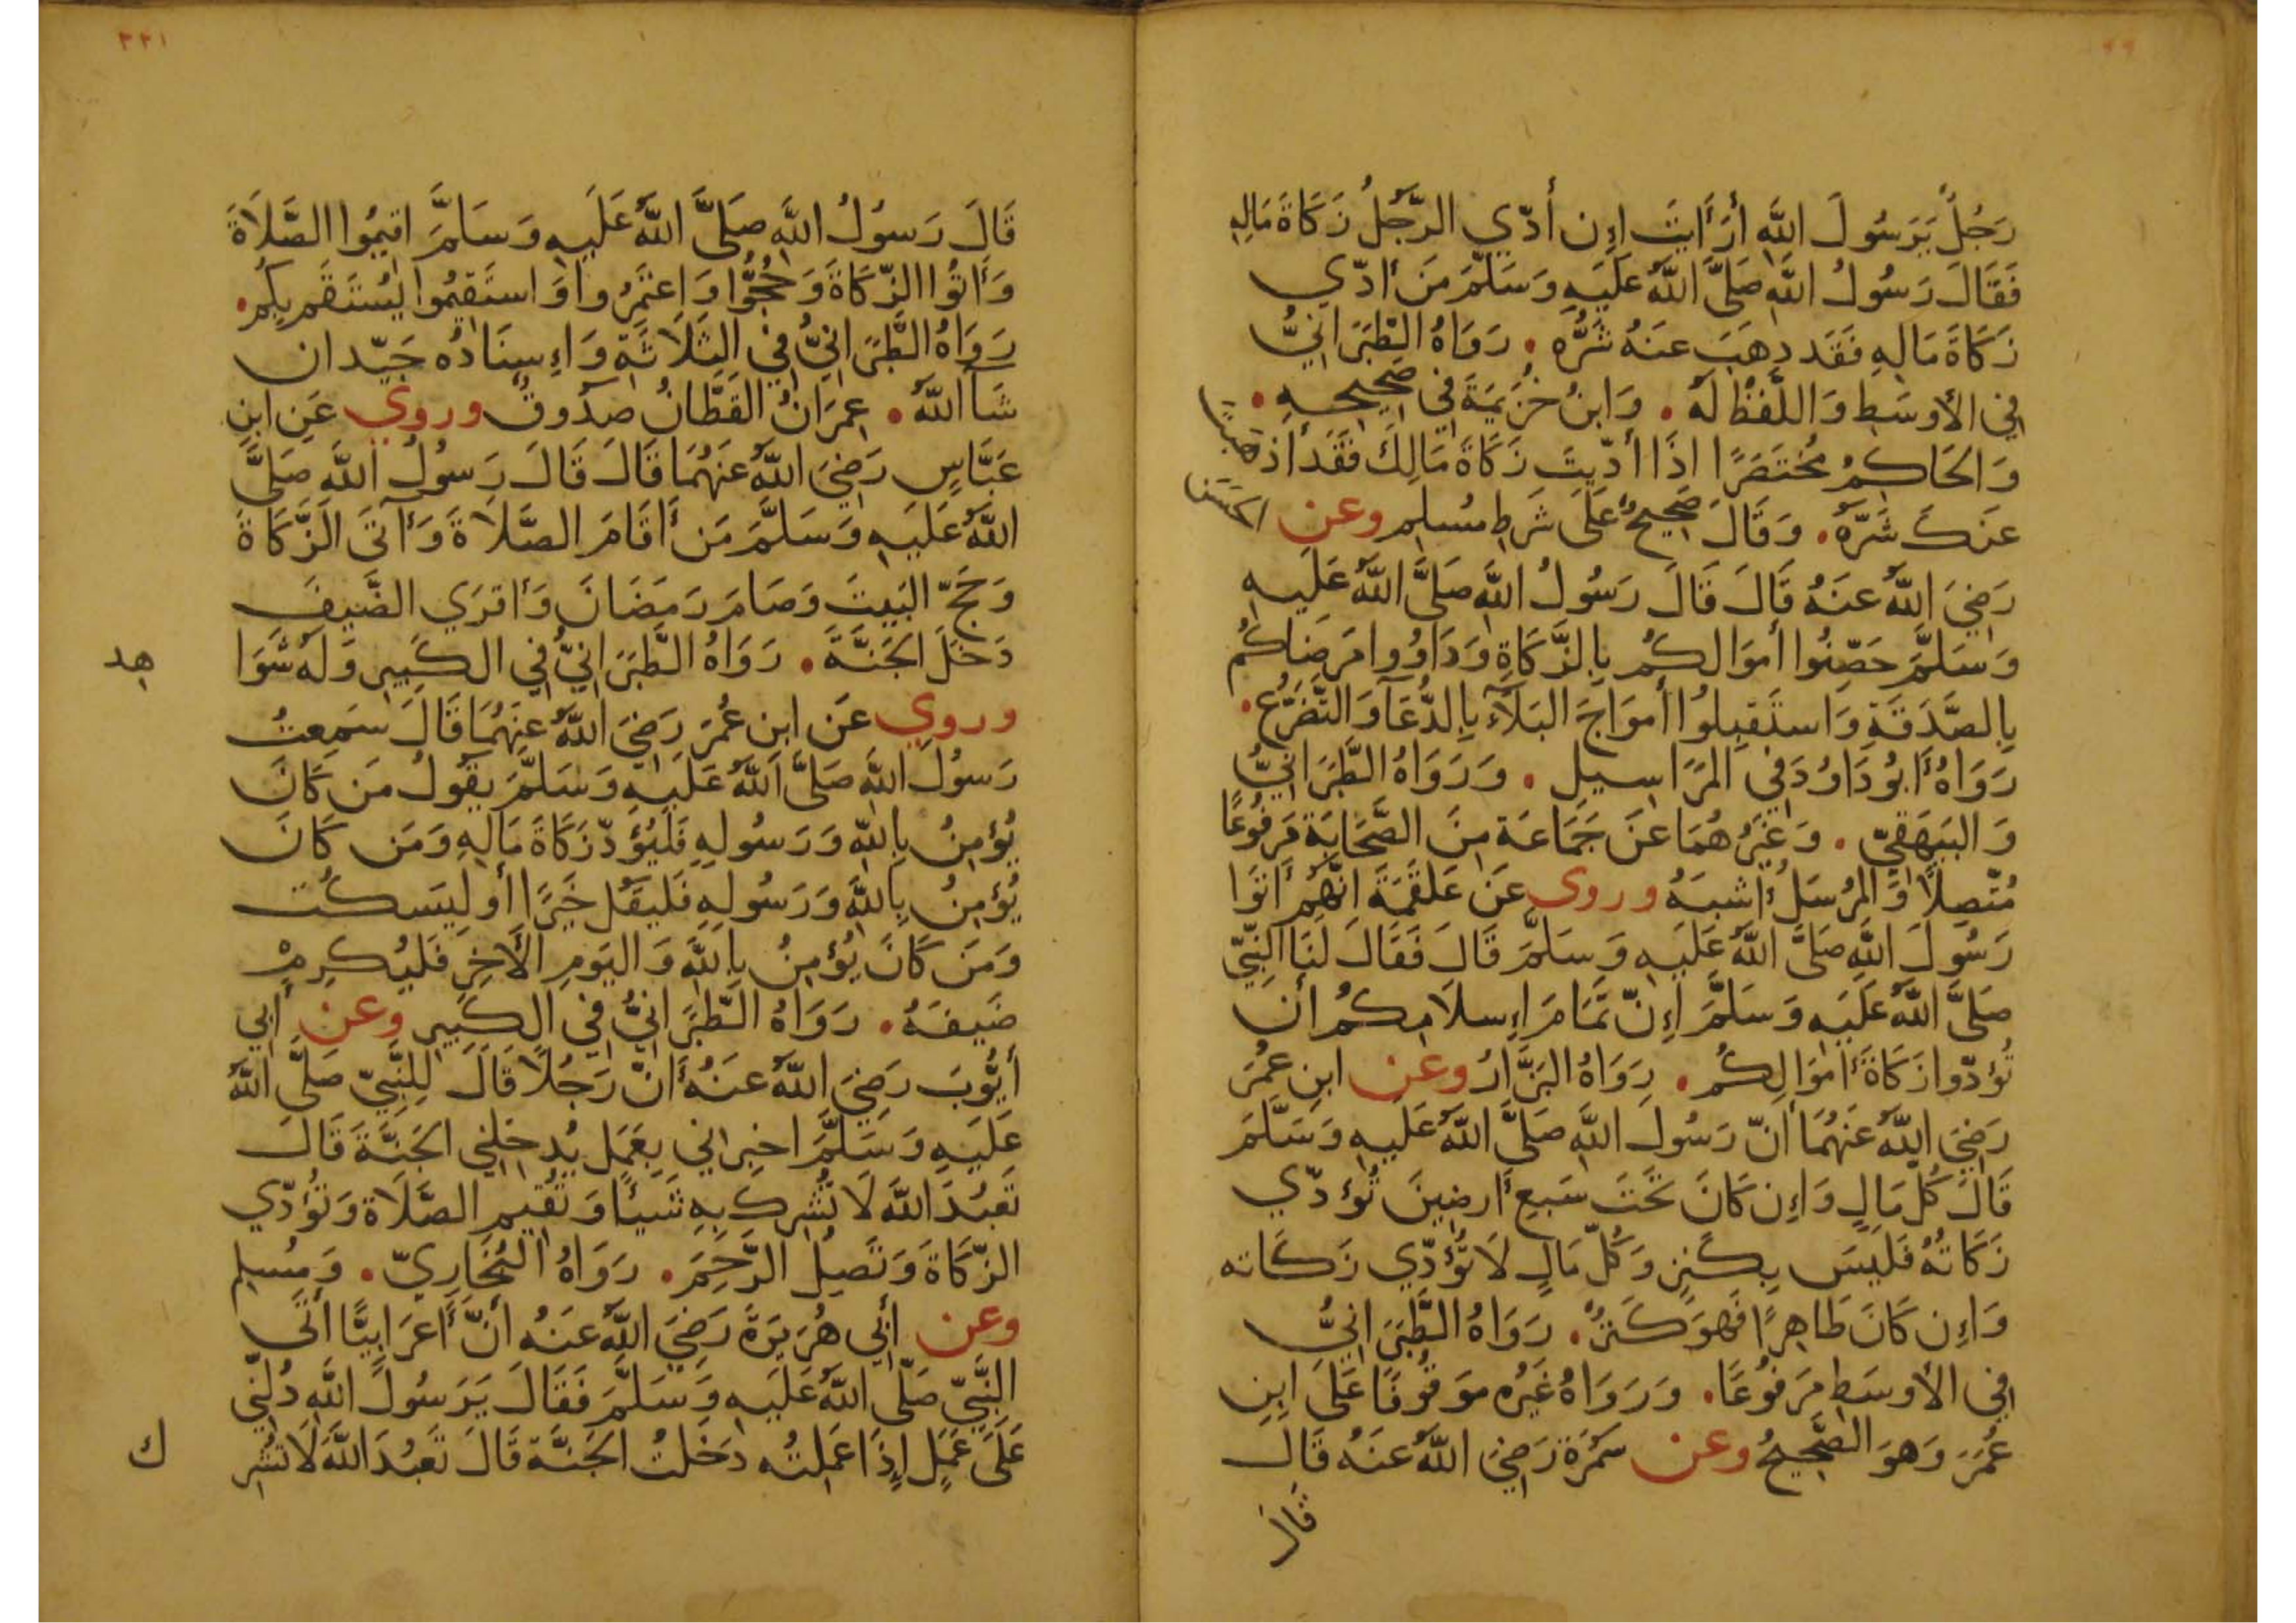 رَجُلٌ يَرَسُولَ اللَّهِ أَرَأَيتَ اِن أَدّي الرَّجُلُ زَكَاةَ مَالِهِ
فَقَالَ رَسُولُ اللَّهِ صَلَّى اللَّهُ عَلَيهِ وَسَلَّمَ مَن أَدّي
زَكَاةَ مَالِهِ فَقَد ذهَبَ عنَهُ شَرُّه . رَوَاهُ الطَّبَرَانِيُّ
فِي الأَوسَطِ وَاللَّفظُ لَهُ . وَابنُ خُزَيمَةَ فِي صَحِيحِهِ .
وَالحَاكِمُ مُختَصَرًا اذَا أَدّيتَ زَكَاةَ مَالِكَ فَقَد أَذهَبتَ
عَنكَ شَرَّهُ . وَقَالَ صَحِيحٌ عَلَى شَرطِ مُسلِم وعن الحَسَن
رَضِيَ اللَّهُ عنَهُ قَالَ قَالَ رَسُولُ اللَّهِ صَلَّى اللَّهُ عَلَيهِ
وَسَلَّمَ حَصِّنُوا أَموَالكُم بِالزَّكَاةِ وَدَاوُوا مَرضَاكُم
بِالصَّدَقَةِ وَاستَقبِلُوا أَموَاجَ البَلَآءِ بِالدُّعَآ وَالتَّضَرُّعِ .
رَوَاهُ أَبُو دَاوُدَ فِي المَرَاسِيلِ . وَرَوَاهُ الطَّبَرَانِيُّ
وَالبَيهَقِيّ . وَغَيرُهُمَا عَن جَمَاعَة مِنَ الصَّحَابَة مَرفُوعًا
مُتَّصِلًا وَالمُرسَلُ أَشبَهُ وروى عَن عَلقَمَةَ انَّهُم أَتَوا
رَسُولَ اللَّهِ صَلَّى اللَّهُ عَلَيهِ وَسَلَّمَ قَالَ فَقَالَ لَنَا النَّبِيّ
صَلَّى اللَّهُ عَلَيهِ وَسَلَّمَ اِنّ تَمَامَ اِسلَامِكُم أَن
تُؤدّوا زَكَاةَ أَموَالِكُم . رَوَاهُ البَزَّارُ وعن ابنِ عُمَرَ
رَضِيَ اللَّهُ عَنهُمَا أَنّ رَسُولَ اللَّهِ صَلَّى اللَّهُ عَلَيهِ وَسَلَّمَ
قَالَ كُلّ مَالٍ وَاِن كَانَ تَحتَ سَبعِ أَرضِينَ تُؤدّي
زَكَاتُهُ فَلَيسَ بِكَنزٍ وَكُلّ مَالٍ لَا تُؤَدّي زَكَاته
وَاِن كَانَ ظَاهِرًا فَهوَ كَنزٌ . رَوَاهُ الطَّبَرَانِيُّ
فِي الأَوسَطِ مَرفُوعًا . وَرَوَاهُ غَيرُه مَوقُوفًا عَلَى ابنِ
عُمَرَ وَهوَ الصَّحِيحُ وعن سَمُرَة رَضِيَ اللَّهُ عنَهُ قَالَ
قَالَ
٢٢١
قَالَ رَسُولُ اللَّهِ صَلَّى اللَّهُ عَلَيهِ وَسَلَّمَ اقِيمُوا الصَّلَاةَ
وَأتُوا الزّكَاةَ وَحُجُّوا وَاعتَمِرُوا وَاستَقِيمُوا يُستَقَم بِكُم .
رَوَاهُ الطَّبَرَانِيُّ فِي الثلَاثَةِ وَاِسنَادُه جَيّد ان
شَآ اللَّهُ . عِمرَانُ القَطَّانُ صَدُوقٌ وروي عَنِ ابنِ
عَبَّاسٍ رَضِيَ اللَّهُ عَنهُمَا قَالَ قَالَ رَسُولُ اللَّهِ صَلَّى
اللَّهُ عَلَيهِ وَسَلَّمَ مَن أَقَامَ الصَّلَاةَ وَآتَى الزَّكَاةَ
وَحَجّ البَيتَ وَصَامَ رَمَضَانَ وَأَقرَي الضَّيفَ
دَخَلَ الجَنَّةَ . رَوَاهُ الطَّبَرَانِيُّ فِي الكَبِيرِ وَلَه شَوَا
هد
وروي عَن ابنِ عُمَرَ رَضِيَ اللَّهُ عَنهُمَا قَالَ سَمِعتُ
رَسُولَ اللَّهِ صَلَّى اللَّهُ عَلَيهِ وَسَلَّمَ يَقُولُ مَن كَانَ
يُؤمِنُ بِاللَّهِ وَرَسُولِهِ فَليُؤَدّ زَكَاةَ مَالِهِ وَمَن كَانَ
يُؤمِنُ بِاللَّهِ وَرَسُولِهِ فَليَقُل خَيرًا أَو لِيَسكُت
وَمَن كَانَ يُؤمِنُ بِاللَّهِ وَاليَومِ الأَخِرِ فَليُكرِمْ
ضَيفَهُ . رَوَاهُ الطَّبَرَانِيُّ فِي الكَبِيرِ وعن أَبِي
أَيُّوبَ رَضِيَ اللَّهُ عنَهُ أَنّ رَجُلًا قَالَ لِلنَّبِيّ صَلَّى اللَّهُ
عَلَيهِ وَسَلَّمَ اخبِراني بِعَمَلٍ يُدخِلنِي الجَنَّةَ قَالَ
تَعبُدَ اللَّهَ لَا تُشرِك بِهِ شَيئًا وَتُقِيمَ الصَّلَاة وَتُؤَدّي
الزّكَاةَ وَتَصِلُ الرَّحِمَ . رَوَاهُ البُخَارِيّ . وَمُسلِم
وعن أَبِي هُرَيرَةَ رَضِيَ اللَّهُ عنَهُ أَنَّ أَعرَابِيًّا أَتَى
النَّبِيّ صَلَّى اللَّهُ عَلَيهِ وَسَلَّمَ فَقَالَ يَرَسُولَ اللَّهِ دُلَّنِي
عَلَى عَمَلٍ اِذَا عَمِلتُه دَخَلتُ الجَنَّة قَالَ تَعبُدَ اللَّهَ لَا تُشرِ
ك